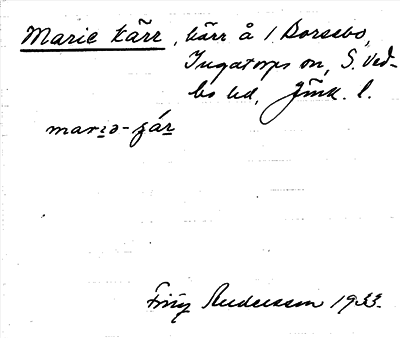 Marie kärr, kärr å 1 Borsebo,
Ingatorps sn, S. Ved-
bo hd, Jönk. l.
mariə-
Andersson 1933.